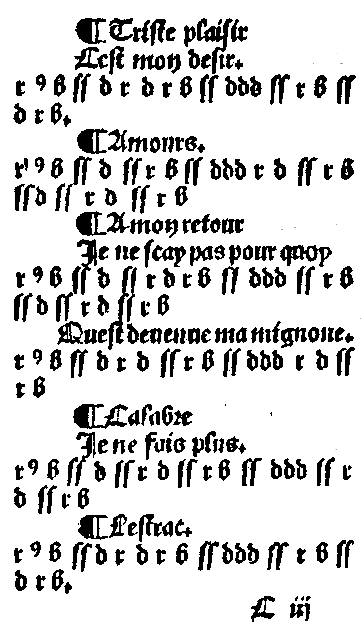 ¶ Triſte plaiſir
Ceſt mon deſir.
r 9 b ſſ d r d r b ſſ ddd ſſ r b ſſ
d r b.
¶ Amours.
r 9 b ſſ d ſſ r b ſſ ddd r d ſſ r b
ſſ d ſſ r d ſſ r b
¶ A mon retour
Je ne ſcay pas pour quoy
r 9 b ſſ d ſſ r d r b ſſ ddd ſſ r b
ſſ d ſſ r d ſſ r b
Queſt deuenue ma mignone.
r 9 b ſſ d r d ſſ r b ſſ ddd r d ſſ
r b
¶ Calabre
Je ne fais plus.
r 9 b ſſ d ſſ r d ſſ r b ſſ ddd ſſ r
d ſſ r b
¶ Leſtrac.
r 9 b ſſ d r d r b ſſ ddd ſſ r b ſſ
d r b.
C iij